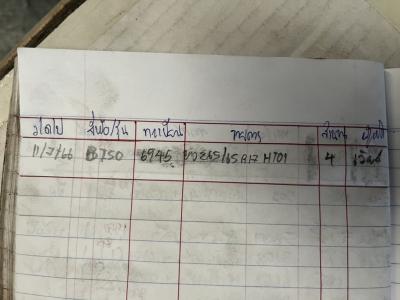 ว/ด/ป ยี่ห้อ/รุ่น ทะเบียน รายการ จำนวน
11/7/66 B750 6945 ยาง265/65R17 HT01 4